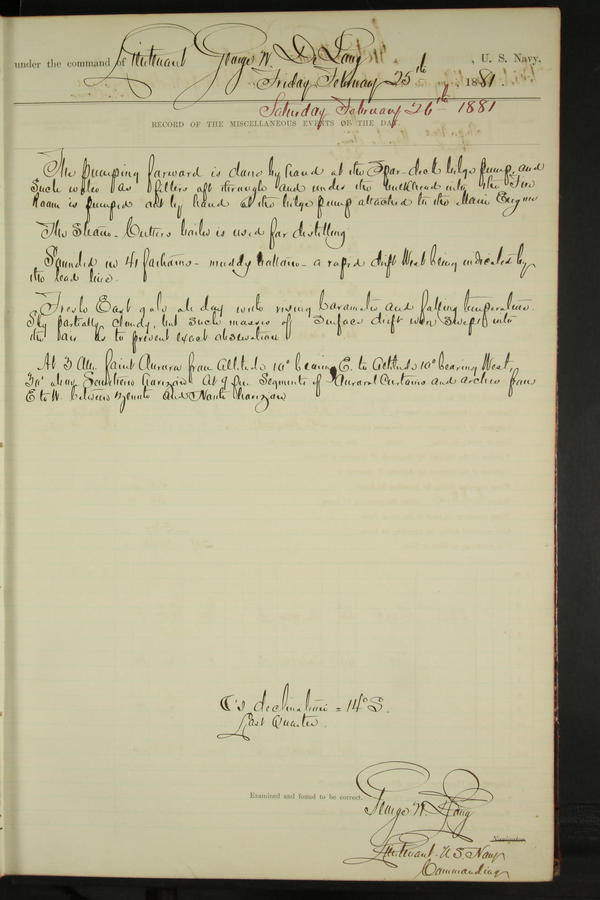 under the command of Lieutenant George W. De Long, U. S. Navy,
Friday, February 25th, 1881.
Saturday February 26th 1881
RECORD OF THE MISCELLANEOUS EVENTS OF THE DAY.
The pumping forward is done by hand at the Spar-deck bilge pump, and
such water as filters aft through and under the bulkhead into the Fire
Room is pumped out by hand at the bilge pump attached to the Main Engine
The Steam-Cutters boiler is used for distilling
Sounded in 41 fathoms - muddy bottom - a rapid drift West being indicated by
the lead line.
Fresh East gale all day with rising barometer and falling temperature.
Sky partially cloudy, but such masses of surface drift were swept into
the air as to prevent exact observation
At 3 A.M. faint Aurora from Altitude 10° bearing E. to Altitude 10° bearing West,
30° above Southern horizon. At 9 P.M. Segments of Auroral Curtains and arches from
E to W. between Zenith and North horizon
☾'s declination = 14° S.
Last Quarter.
Examined and found to be correct.
George W. De Long
Navigator.
Lieutenant. U.S. Navy
Commanding